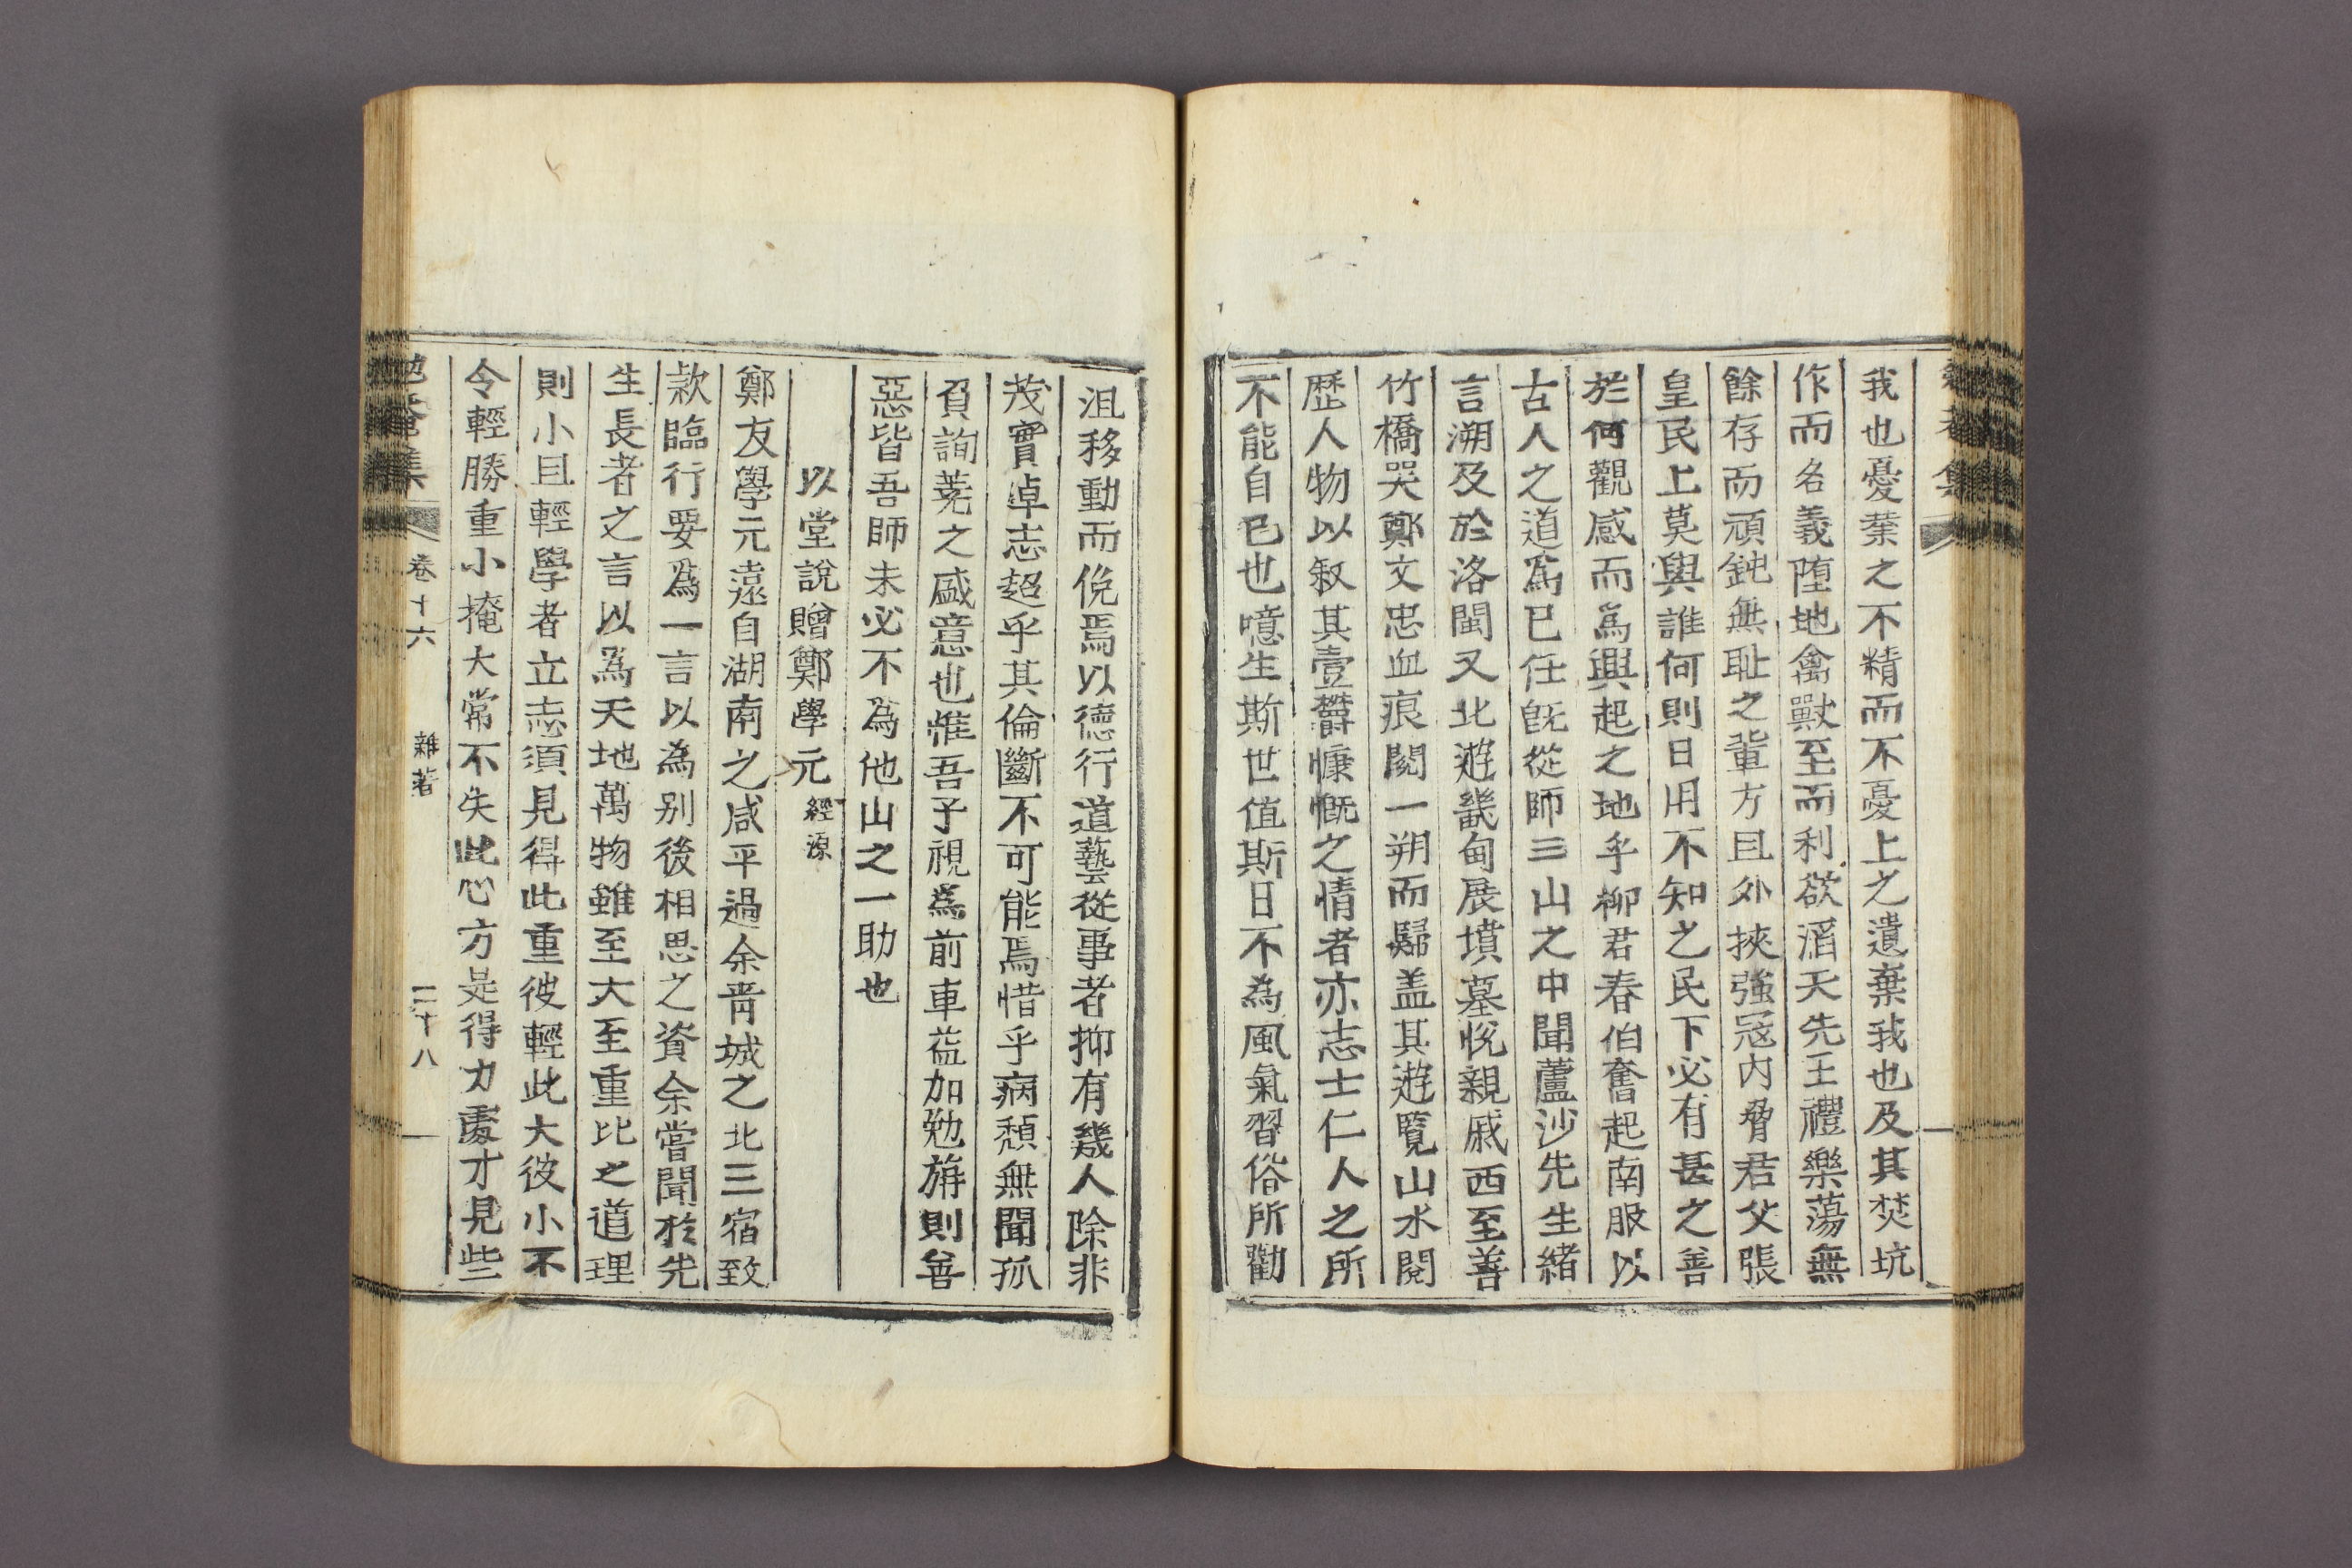 我也憂業之不精而不憂上之遺棄我也及其焚坑
作而名義墮地禽獸至而利欲滔天先王禮樂蕩無
餘存而頑鈍無恥之輩方且外挾強寇內脅君父張
皇民上莫與誰何則日用不知之民下必有甚之善
於何觀感而爲興起之地乎柳君春伯奮起南服以
古人之道爲已任旣從師三山之中聞蘆沙先生緖
言溯及於洛閩又北遊畿甸展墳墓悅親戚西至善
竹橋哭鄭文忠血痕閱一朔而歸盖其遊覽山水閱
歷人物以叙其壹欝慷慨之情者亦志士仁人之所
不能自已也噫生斯世值斯日不為風氣習俗所勸
沮移動而俛焉以德行道藝從事者抑有幾人除非
茂實卓志超乎其倫斷不可能焉惜乎病頹無聞孤
負詢蕘之盛意也惟吾子視爲前車益加勉旃則善
惡皆吾師未必不為他山之一助也
以堂說贈鄭學元經源
鄭友學元遠自湖南之咸平過余靑城之北三宿致
款臨行要爲一言以為別後相思之資余嘗聞於先
生長者之言以爲天地萬物雖至大至重比之道理
則小且輕學者立志須見得此重彼輕此大彼小不
令輕勝重小掩大常不失此心方是得力處才見些
勉菴集 卷十六 雜著 二十八